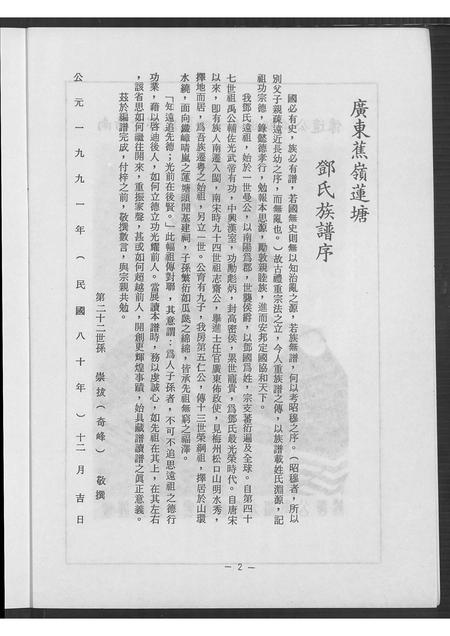 廣東蕉嶺蓮塘
鄧氏族譜序
國必有史，族必有譜，若國無史則無以知治亂之源，若族無譜，何以考昭穆之序。（昭穆者，所以
別父子親疏遠近長幼之序，而無亂也。）故古禮重宗法之立，今人重族譜之傳，以族譜載姓氏淵源，記
祖功宗德，錄懿德孝行，勉報本思源，勵敦親睦族，進而安邦定國協和天下。
我鄧氏遠祖，始於一世曼公，以南陽爲郡，世襲侯爵，以鄧國爲姓，宗支蕃衍遍及全球。自第四十
七世祖禹公輔佐光武帝有功，中興漢室，功勳彪炳，封高密侯，累世寵貴，爲鄧氏最光榮時代。自唐宋
以來，即有族人南遷入閩，南宋時九十四世祖志齋公，舉進士任官廣東佈政使，見梅州松口山明水秀，
擇地而居，爲吾族遷粵之始祖，另立一世。公育有九子，我房第五仁公，傳十三世榮綱祖，擇居於山環
水繞，面向鐵嶂晴嵐之蓮塘頭開基建祠，子孫繁衍如瓜瓞之綿綿，皆承先祖無窮之福澤。
「知遠追先德；光前在後賢。」此幅祖傳對聯，其意謂：爲人子孫者，不可不追思遠祖之德行
功業，藉以啓迪後人，如何立德立功光耀前人。當展讀本譜時，務以虔誠心，如先祖在其上，在其左右
，該省思如何繼往開來，重振家聲，甚或如何超越前人，開創更輝煌事蹟，始具藏譜讀譜之眞正意義。
茲於編譜完成，付梓之前，敬撰數言，與宗親共勉。
第二十二世孫 崇拔（奇峰） 敬撰
公元一九九一年（民國八十年）十二月吉日
— 2 —